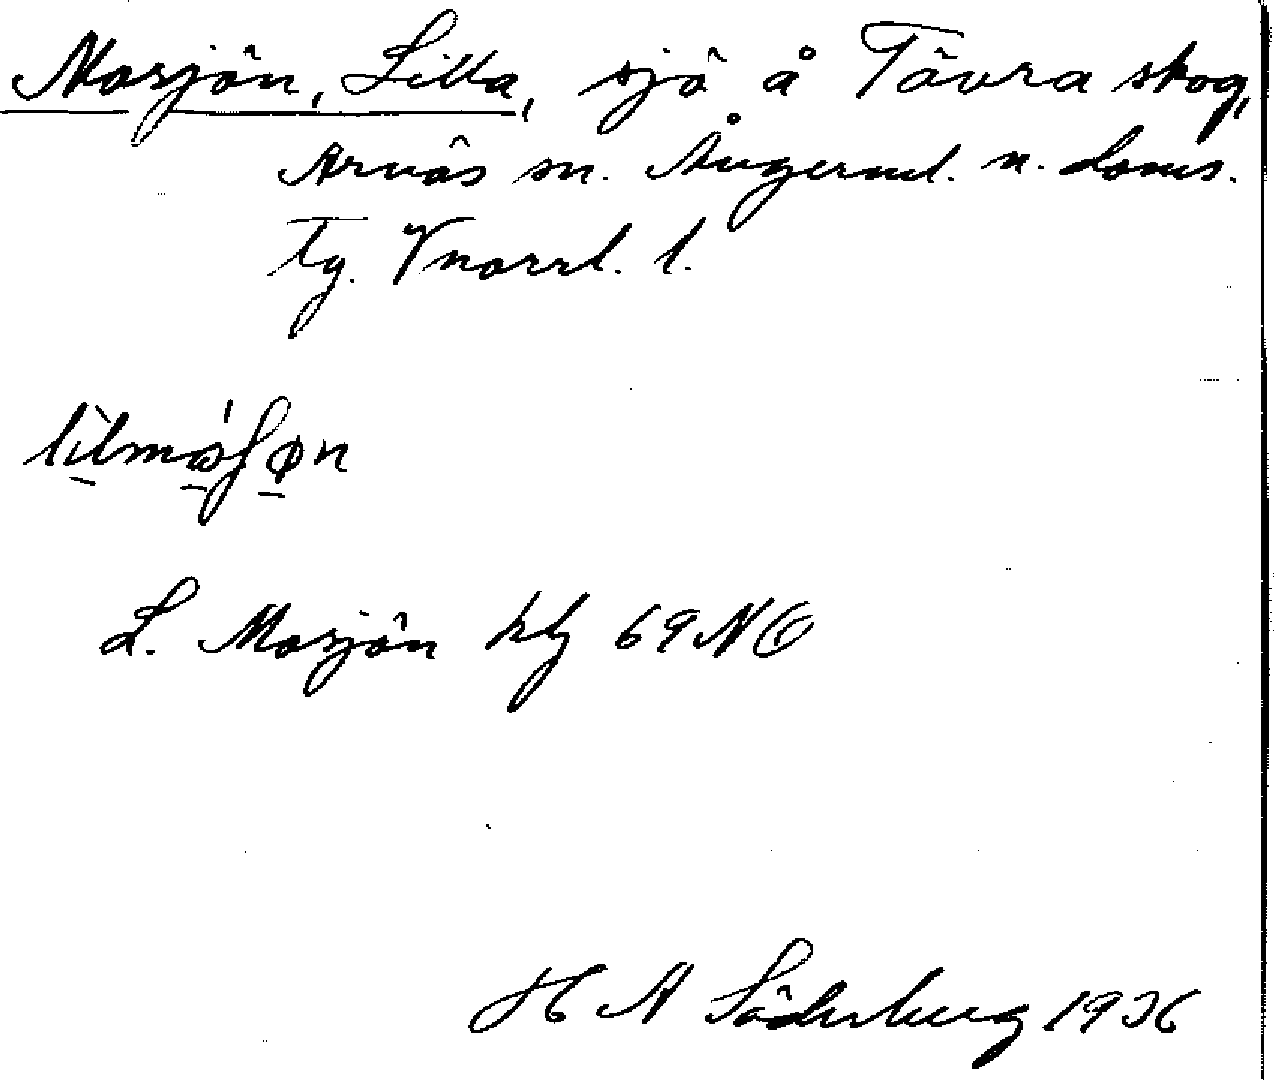 Mosjön, Lilla, sjö å Tävra skog,
Arnäs sn. Ångerml. n. doms.
Tg. Vnorrl. l.
L. Mosjön kbg 69 NO
H A Söderberg 1936